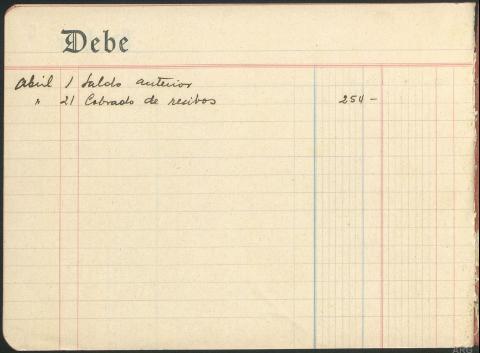 Debe
Abril 1 Saldo anterior
" 21 Cobrado de recibos 254 -
ARG